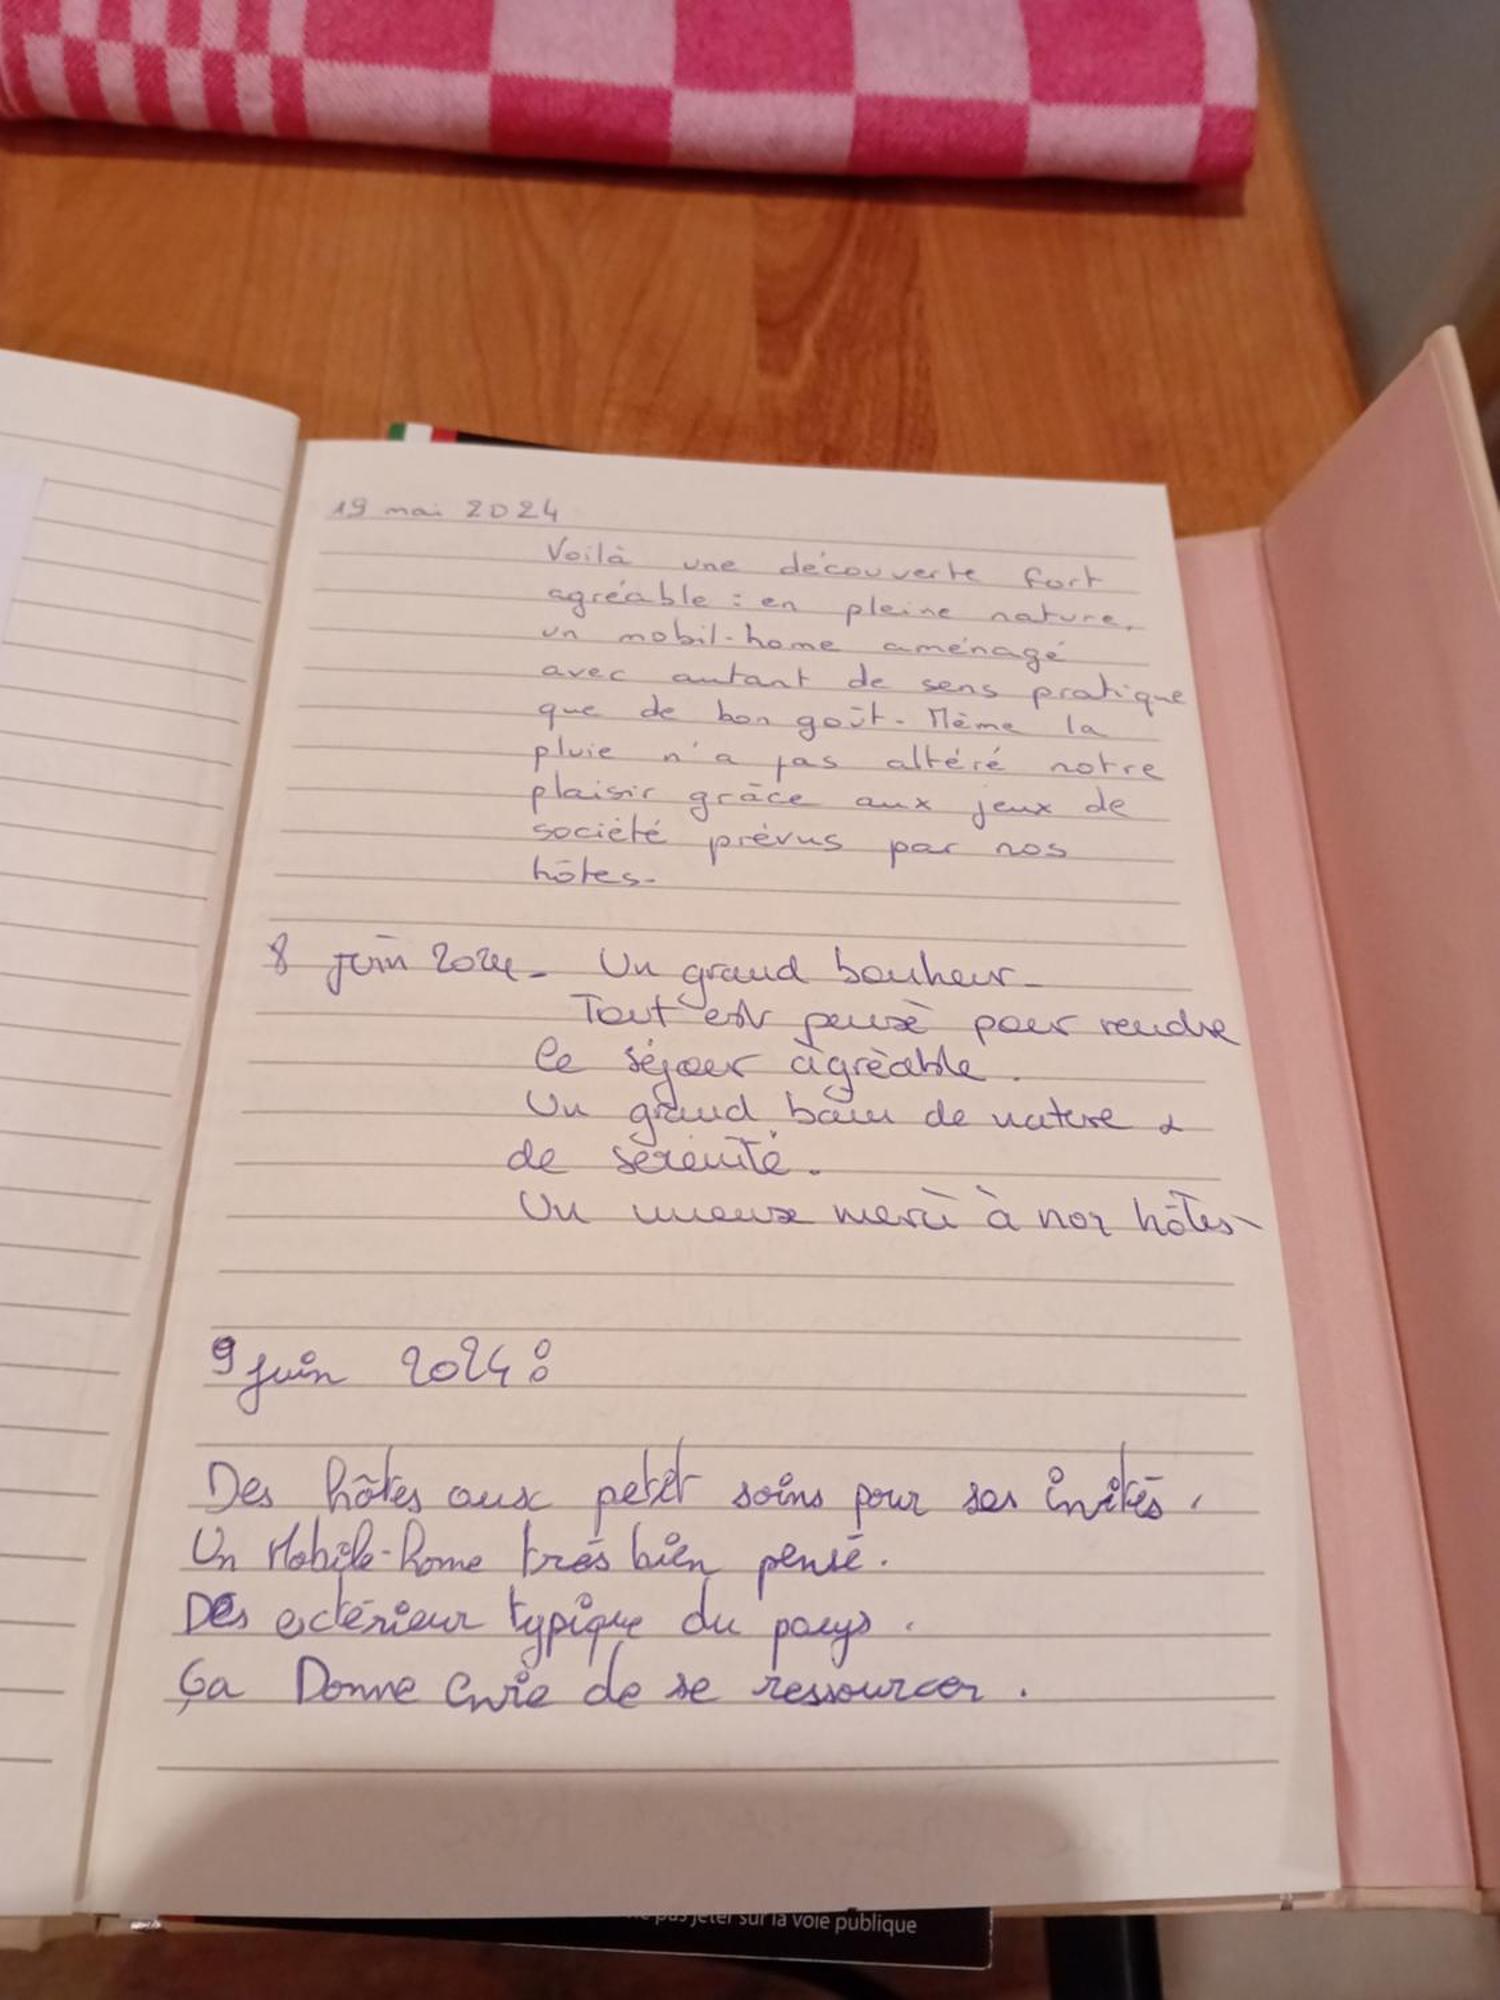 19 mai 2024
Voilà une découverte fort
agréable : en pleine nature,
un mobil-home aménagé
avec autant de sens pratique
que de bon goût. Même la
pluie n'a pas altéré notre
plaisir grâce aux jeux de
société prévus par nos
hôtes.
8 juin 2024 - Un grand bonheur -
Tout est pensé pour rendre
le séjour agréable.
Un grand bain de nature &
de sérénité.
Un merci à nos hôtes
9 juin 2024 :
Des hôtes aux petit soins pour ses invités.
Un Mobile-home très bien pensé.
Des extérieur typique du pays.
Ça Donne Envie de se ressourcer.
pas jeter sur la voie publique